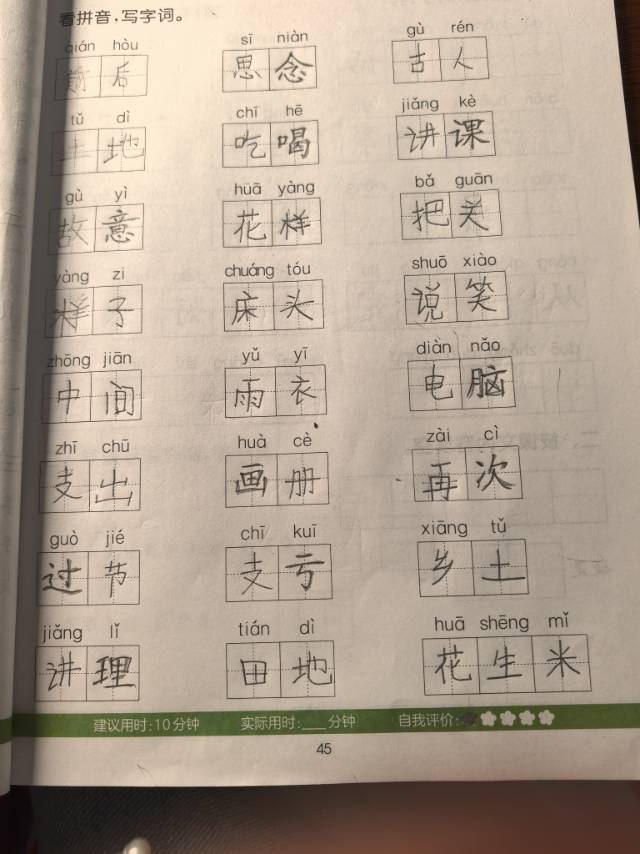 看拼音，写字词。
qián hòu sī niàn gù rén
前后 思念 古人
tǔ dì chī hē jiǎng kè
土地 吃喝 讲课
gù yì huā yàng bǎ guān
故意 花样 把关
yàng zi chuáng tóu shuō xiào
样子 床头 说笑
zhōng jiān yǔ yī diàn nǎo
中间 雨衣 电脑
zhī chū huà cè zài cì
支出 画册 再次
guò jié chī kuī xiāng tǔ
过节 支亏 乡土
jiǎng lǐ tián dì huā shēng mǐ
讲理 田地 花生米
建议用时：10分钟 实际用时：___分钟 自我评价：
45